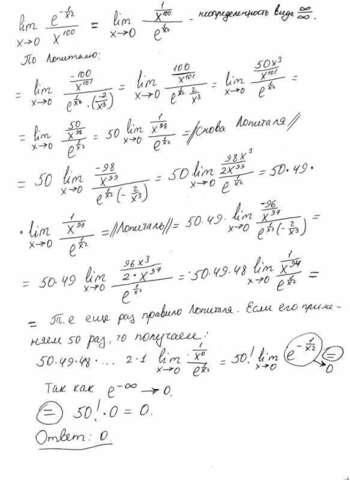 lim x→0 e^(-1/x²) / x^100 = lim x→0 (1/x^100) / e^(1/x²) - неопределенность вида ∞/∞.
По Лопиталю:
= lim x→0 (-100/x^101) / (e^(1/x²) · (-2/x³)) = lim x→0 (100/x^101) / (e^(1/x²) 2/x³) = lim x→0 (50x³/x^101) / e^(1/x²) =
= lim x→0 (50/x^98) / e^(1/x²) = 50 lim x→0 (1/x^98) / e^(1/x²) = //Снова Лопиталя//
= 50 lim x→0 (-98/x^99) / (e^(1/x²) (-2/x³)) = 50 lim x→0 (98x³/2x^99) / e^(1/x²) = 50·49·
· lim x→0 (1/x^96) / e^(1/x²) = //Лопиталь// = 50·49· lim x→0 (-96/x^97) / (e^(1/x²) (-2/x³)) =
= 50·49 lim x→0 (96x³/2·x^97) / e^(1/x²) = 50·49·48 lim x→0 (1/x^94) / e^(1/x²) =
= Т.е еще раз правило Лопиталя. Если его приме-
няем 50 раз, то получаем:
50·49·48·... 2·1 lim x→0 (1/x^0) / e^(1/x²) = 50! lim x→0 e^(-1/x²) = → 0
Так как e^(-∞) → 0.
= 50!·0 = 0.
Ответ: 0